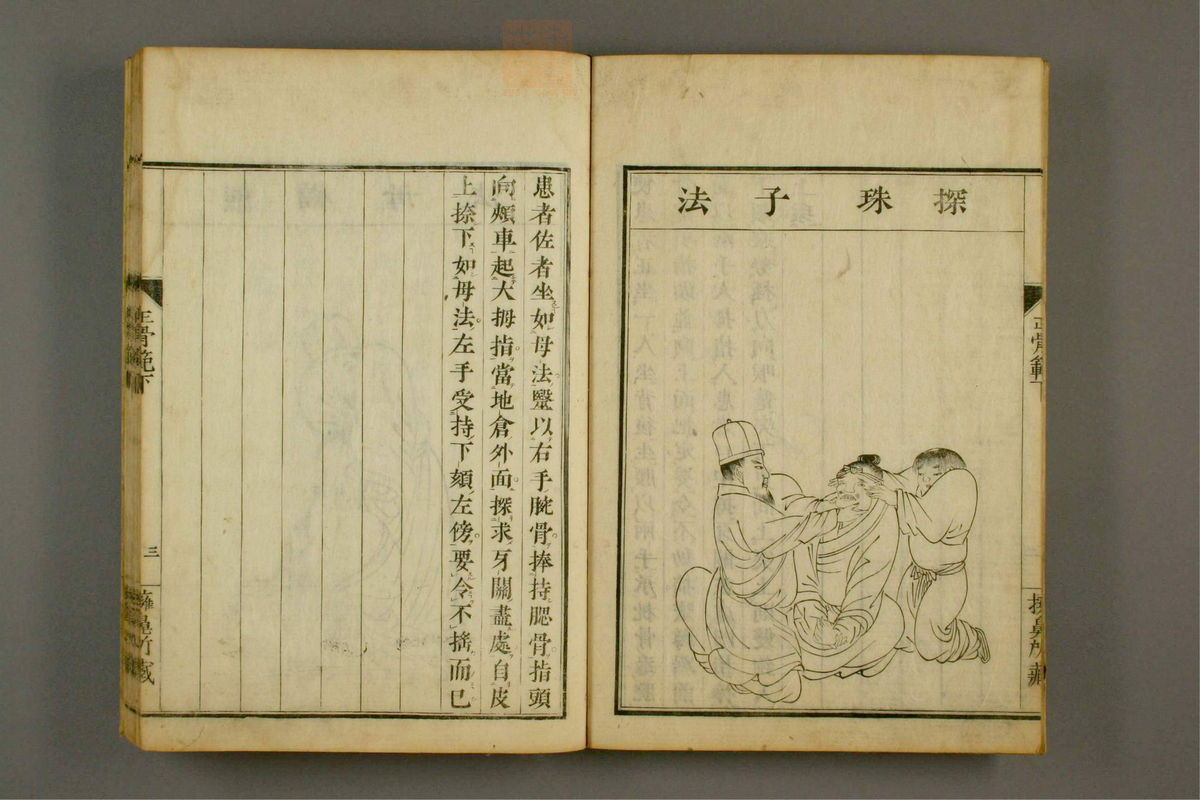 探珠子法
正骨範下
患者佐者坐如母法壂以右手腕骨捧持腮骨指頭
向頰車起大拇指當地倉外面探求牙關盡處自皮
上捺下如母法左手受持下頦左傍要令不搖而已
正骨範下
三